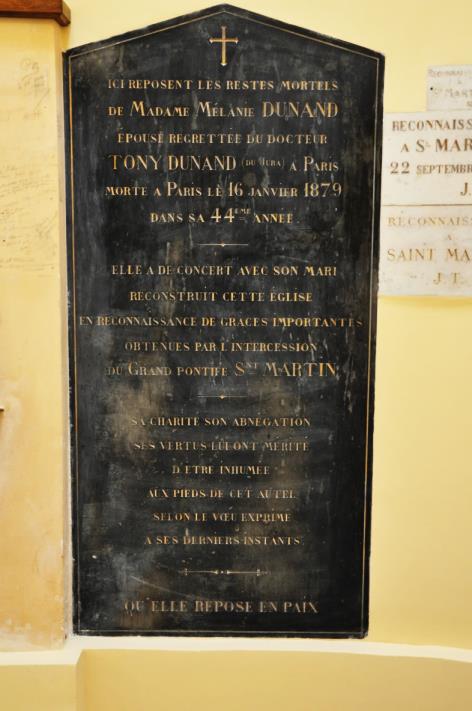 ICI REPOSENT LES RESTES MORTELS
DE MADAME MÉLANIE DUNAND
ÉPOUSE REGRETTÉE DU DOCTEUR
TONY DUNAND (DU JURA) A PARIS
MORTE A PARIS LE 16 JANVIER 1879
DANS SA 44ÈME ANNÉE.
ELLE A DE CONCERT AVEC SON MARI
RECONSTRUIT CETTE ÉGLISE
EN RECONNAISSANCE DE GRACES IMPORTANTES
OBTENUES PAR L'INTERCESSION
DU GRAND PONTIFE SNT MARTIN.
SA CHARITÉ SON ABNÉGATION
SES VERTUS LUI ONT MÉRITÉ
D'ÊTRE INHUMÉE
AUX PIEDS DE CET AUTEL
SELON LE VŒU EXPRIMÉ
A SES DERNIERS INSTANTS.
QU'ELLE REPOSE EN PAIX
RECONNAISS
A ST MAR
22 SEPTEMB
J.
RECONNAISS
A
SAINT MA
J.T.